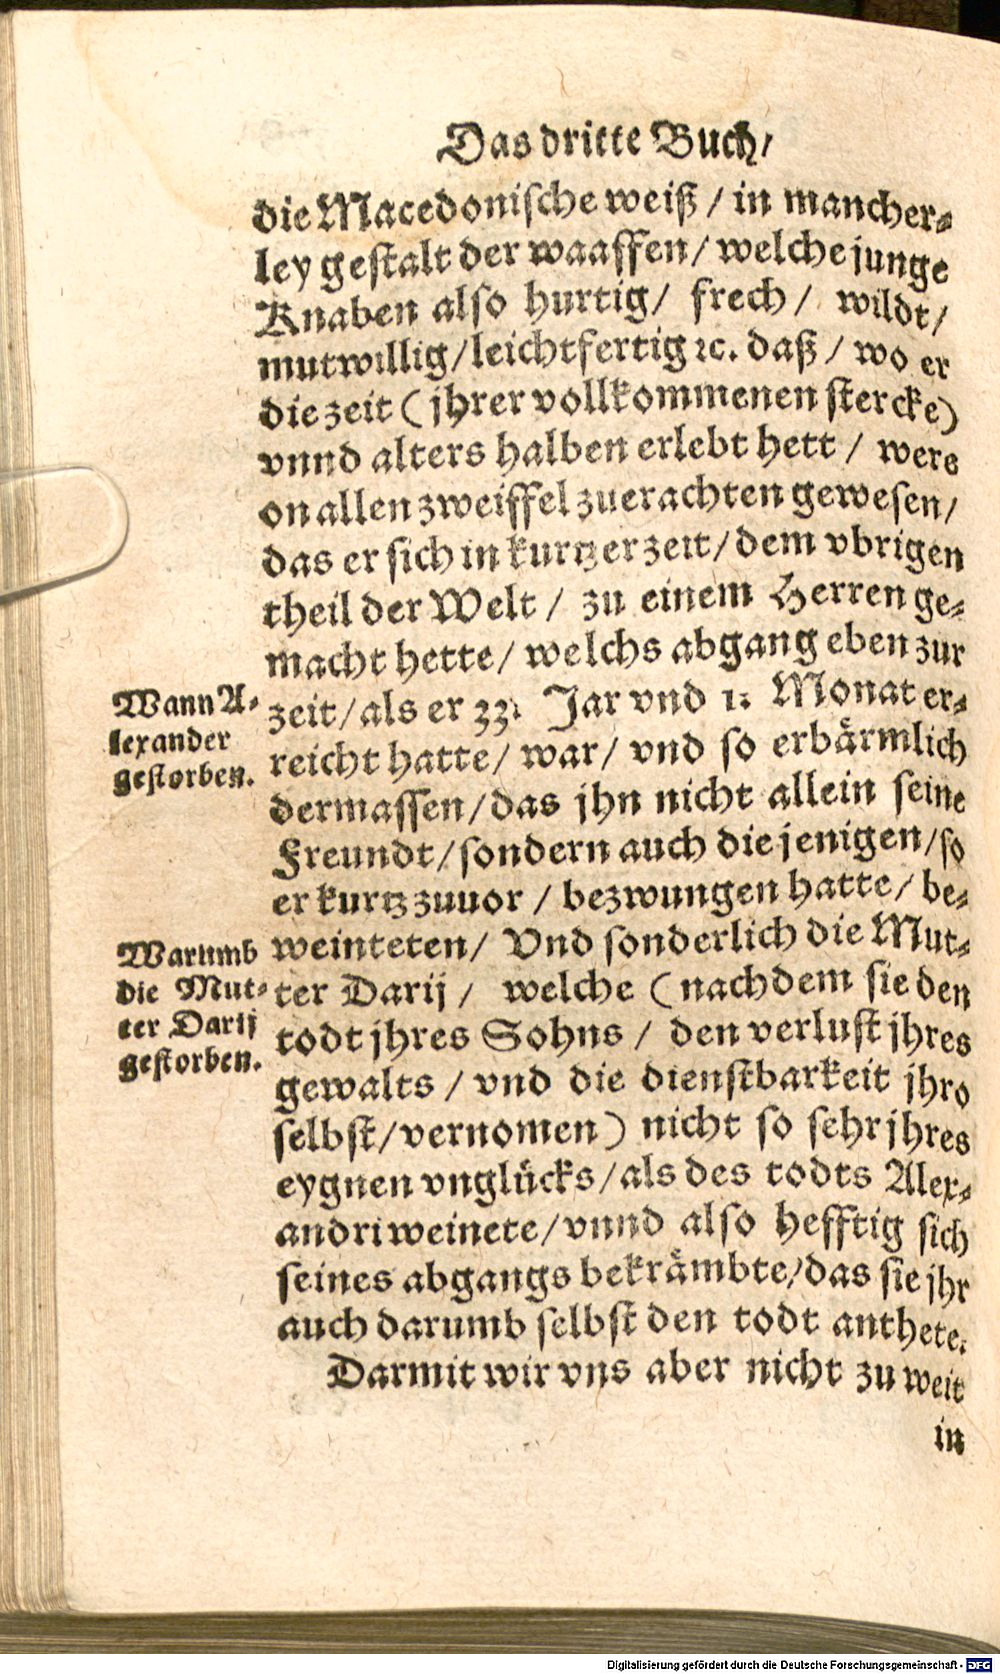 Das dritte Buch/
die Macedonische weiß / in mancher-
ley gestalt der waaffen/ welche junge
Knaben also hurtig/ frech / wildt/
mutwillig/leichtfertig ꝛc. daß / wo er
die zeit (jhrer vollkommenen stercke)
vnnd alters halben erlebt hett / were
on allen zweiffel zuerachten gewesen/
das er sich in kurtzer zeit/dem vbrigen
theil der Welt / zu einem Herren ge-
macht hette/ welchs abgang eben zur
Wann A-
lexander
gestorben.
zeit/als er 33. Jar vnd 1. Monat er-
reicht hatte/ war/ vnd so erbärmlich
dermassen/das jhn nicht allein seine
Freundt/sondern auch die jenigen/so
er kurtz zuuor / bezwungen hatte/ be-
weinteten/ Vnd sonderlich die Mut-
Warumb
die Mut-
ter Darij
gestorben.
ter Darij / welche (nachdem sie den
todt jhres Sohns / den verlust jhres
gewalts / vnd die dienstbarkeit jhro
selbst/vernomen) nicht so sehr jhres
eygnen vnglücks/als des todts Alex-
andri weinete/vnnd also hefftig sich
seines abgangs bekrämbte/das sie jhr
auch darumb selbst den todt anthete.
Darmit wir vns aber nicht zu weit
in
Digitalisierung gefördert durch die Deutsche Forschungsgemeinschaft - DFG